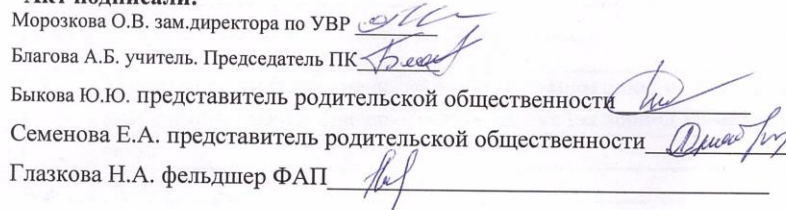 Акт подписали:
Морозкова О.В. зам.директора по УВР
Благова А.Б. учитель. Председатель ПК
Быкова Ю.Ю. представитель родительской общественности
Семенова Е.А. представитель родительской общественности
Глазкова Н.А. фельдшер ФАП